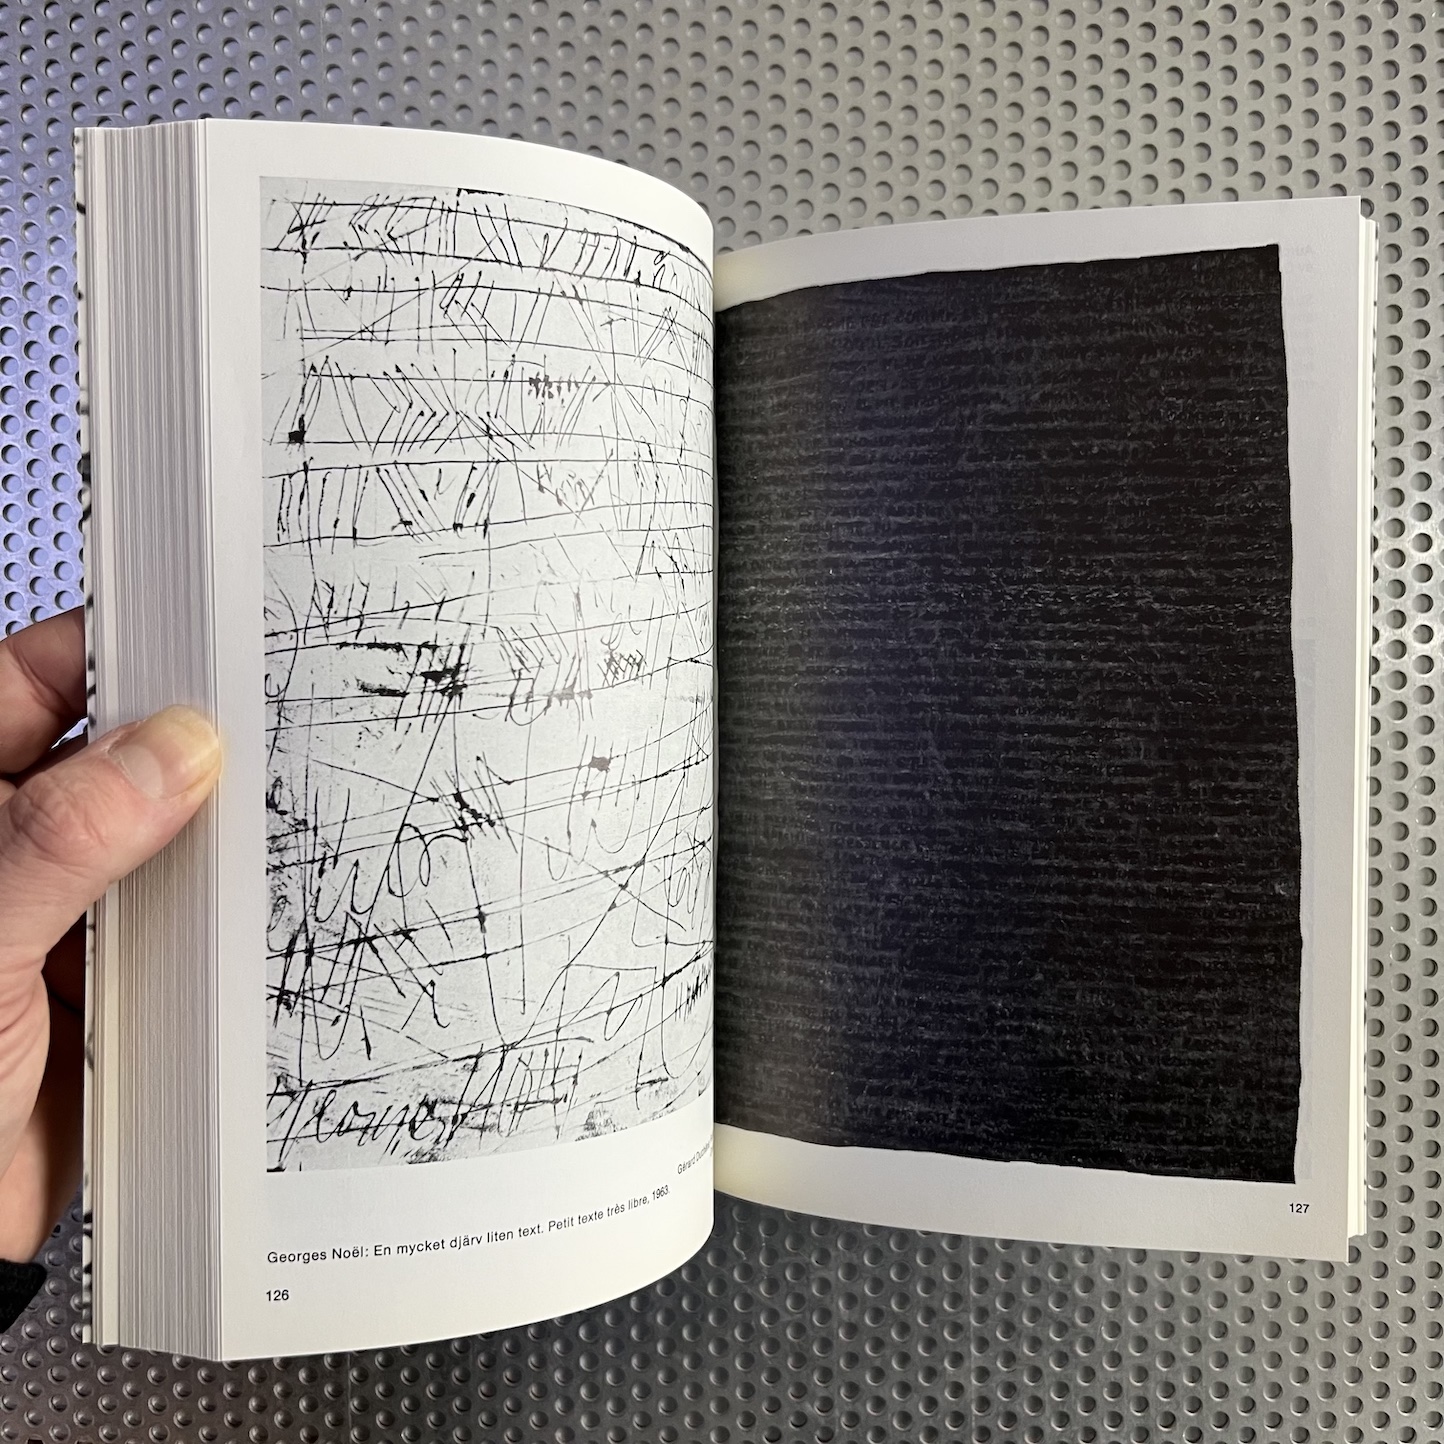 Gérard
Georges Noël: En mycket djärv liten text. Petit texte très libre, 1963.
126
127